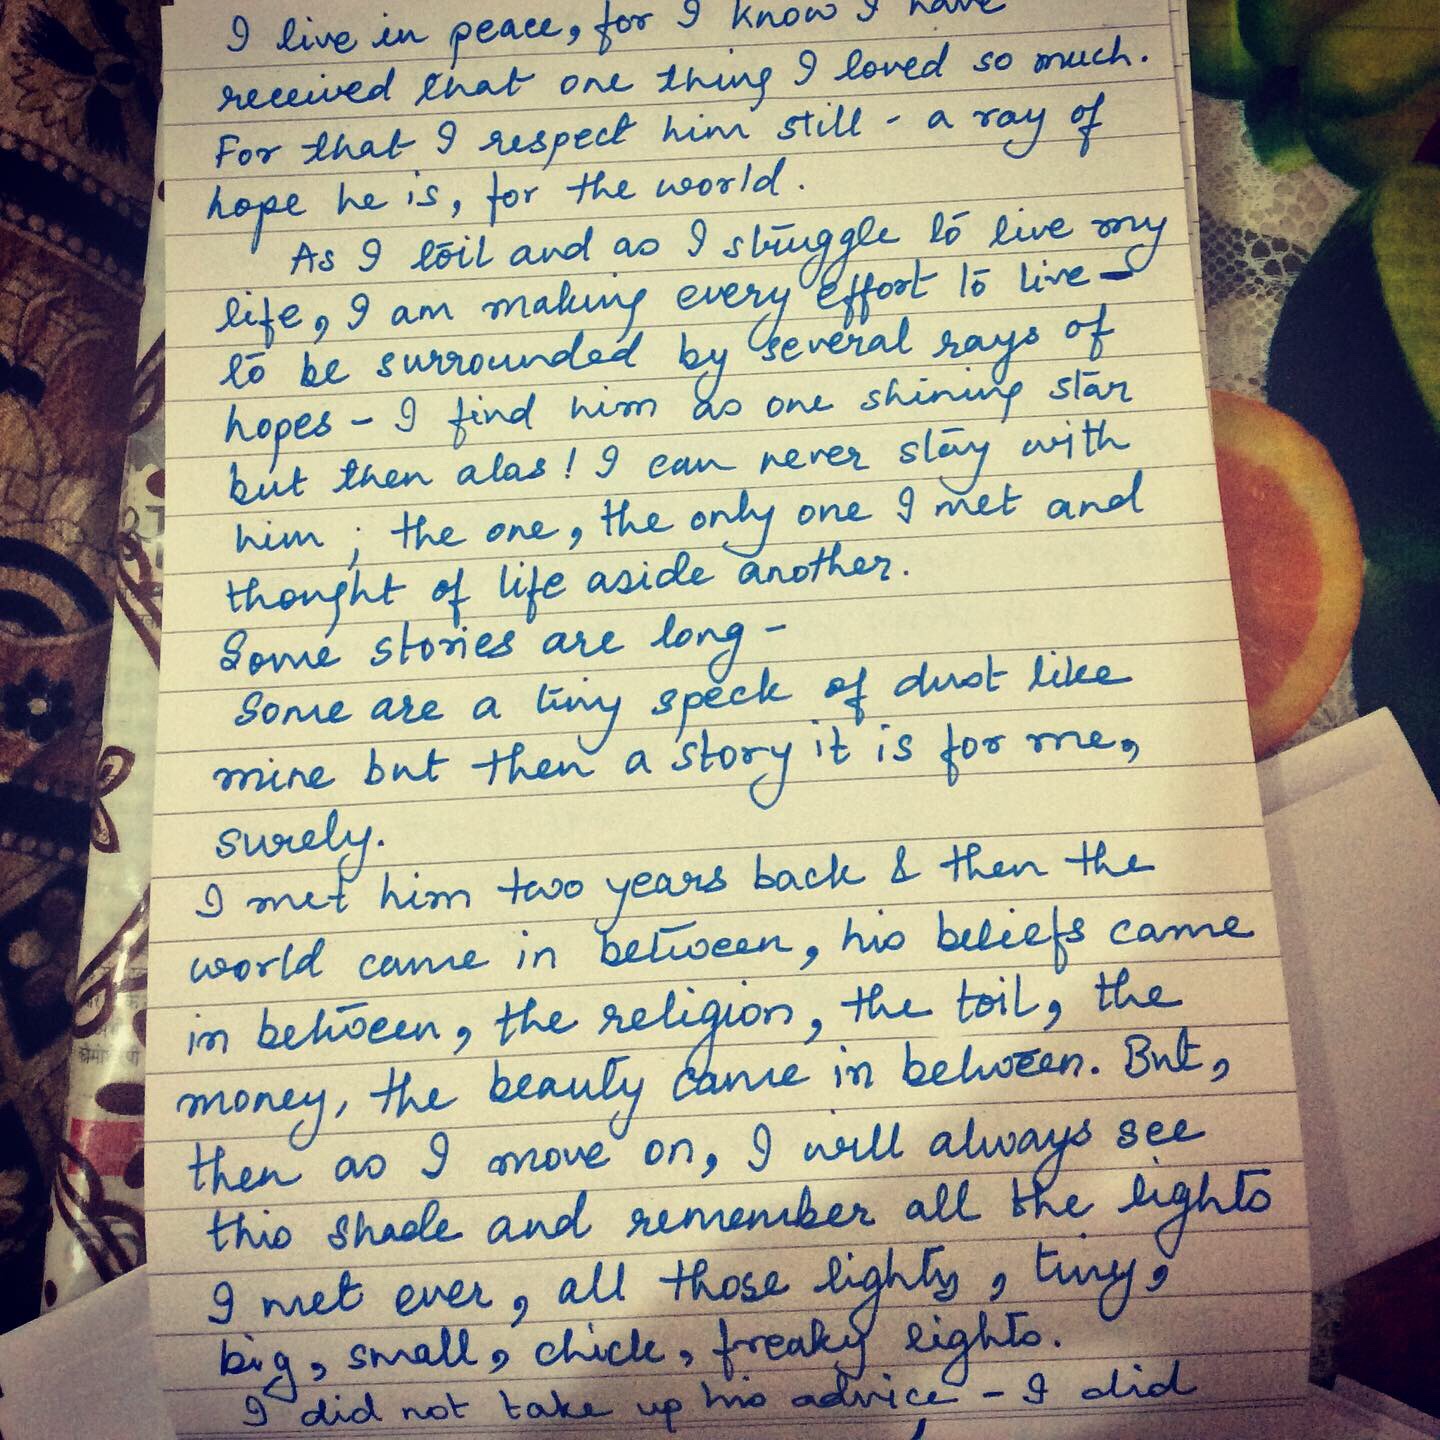 I live in peace, for I know I have
received that one thing I loved so much.
For that I respect him still - a ray of
hope he is, for the world.
As I toil and as I struggle to live my
life, I am making every effort to live -
to be surrounded by several rays of
hopes - I find him as one shining star
but then alas! I can never stay with
him; the one, the only one I met and
thought of life aside another.
Some stories are long -
Some are a tiny speck of dust like
mine but then a story it is for me,
surely.
I met him two years back & then the
world came in between, his beliefs came
in between, the religion, the toil, the
money, the beauty came in between. But,
then as I move on, I will always see
this shade and remember all the lights
I met ever, all those lights, tiny,
big, small, chick, freaky lights.
I did not take up his advice - I did